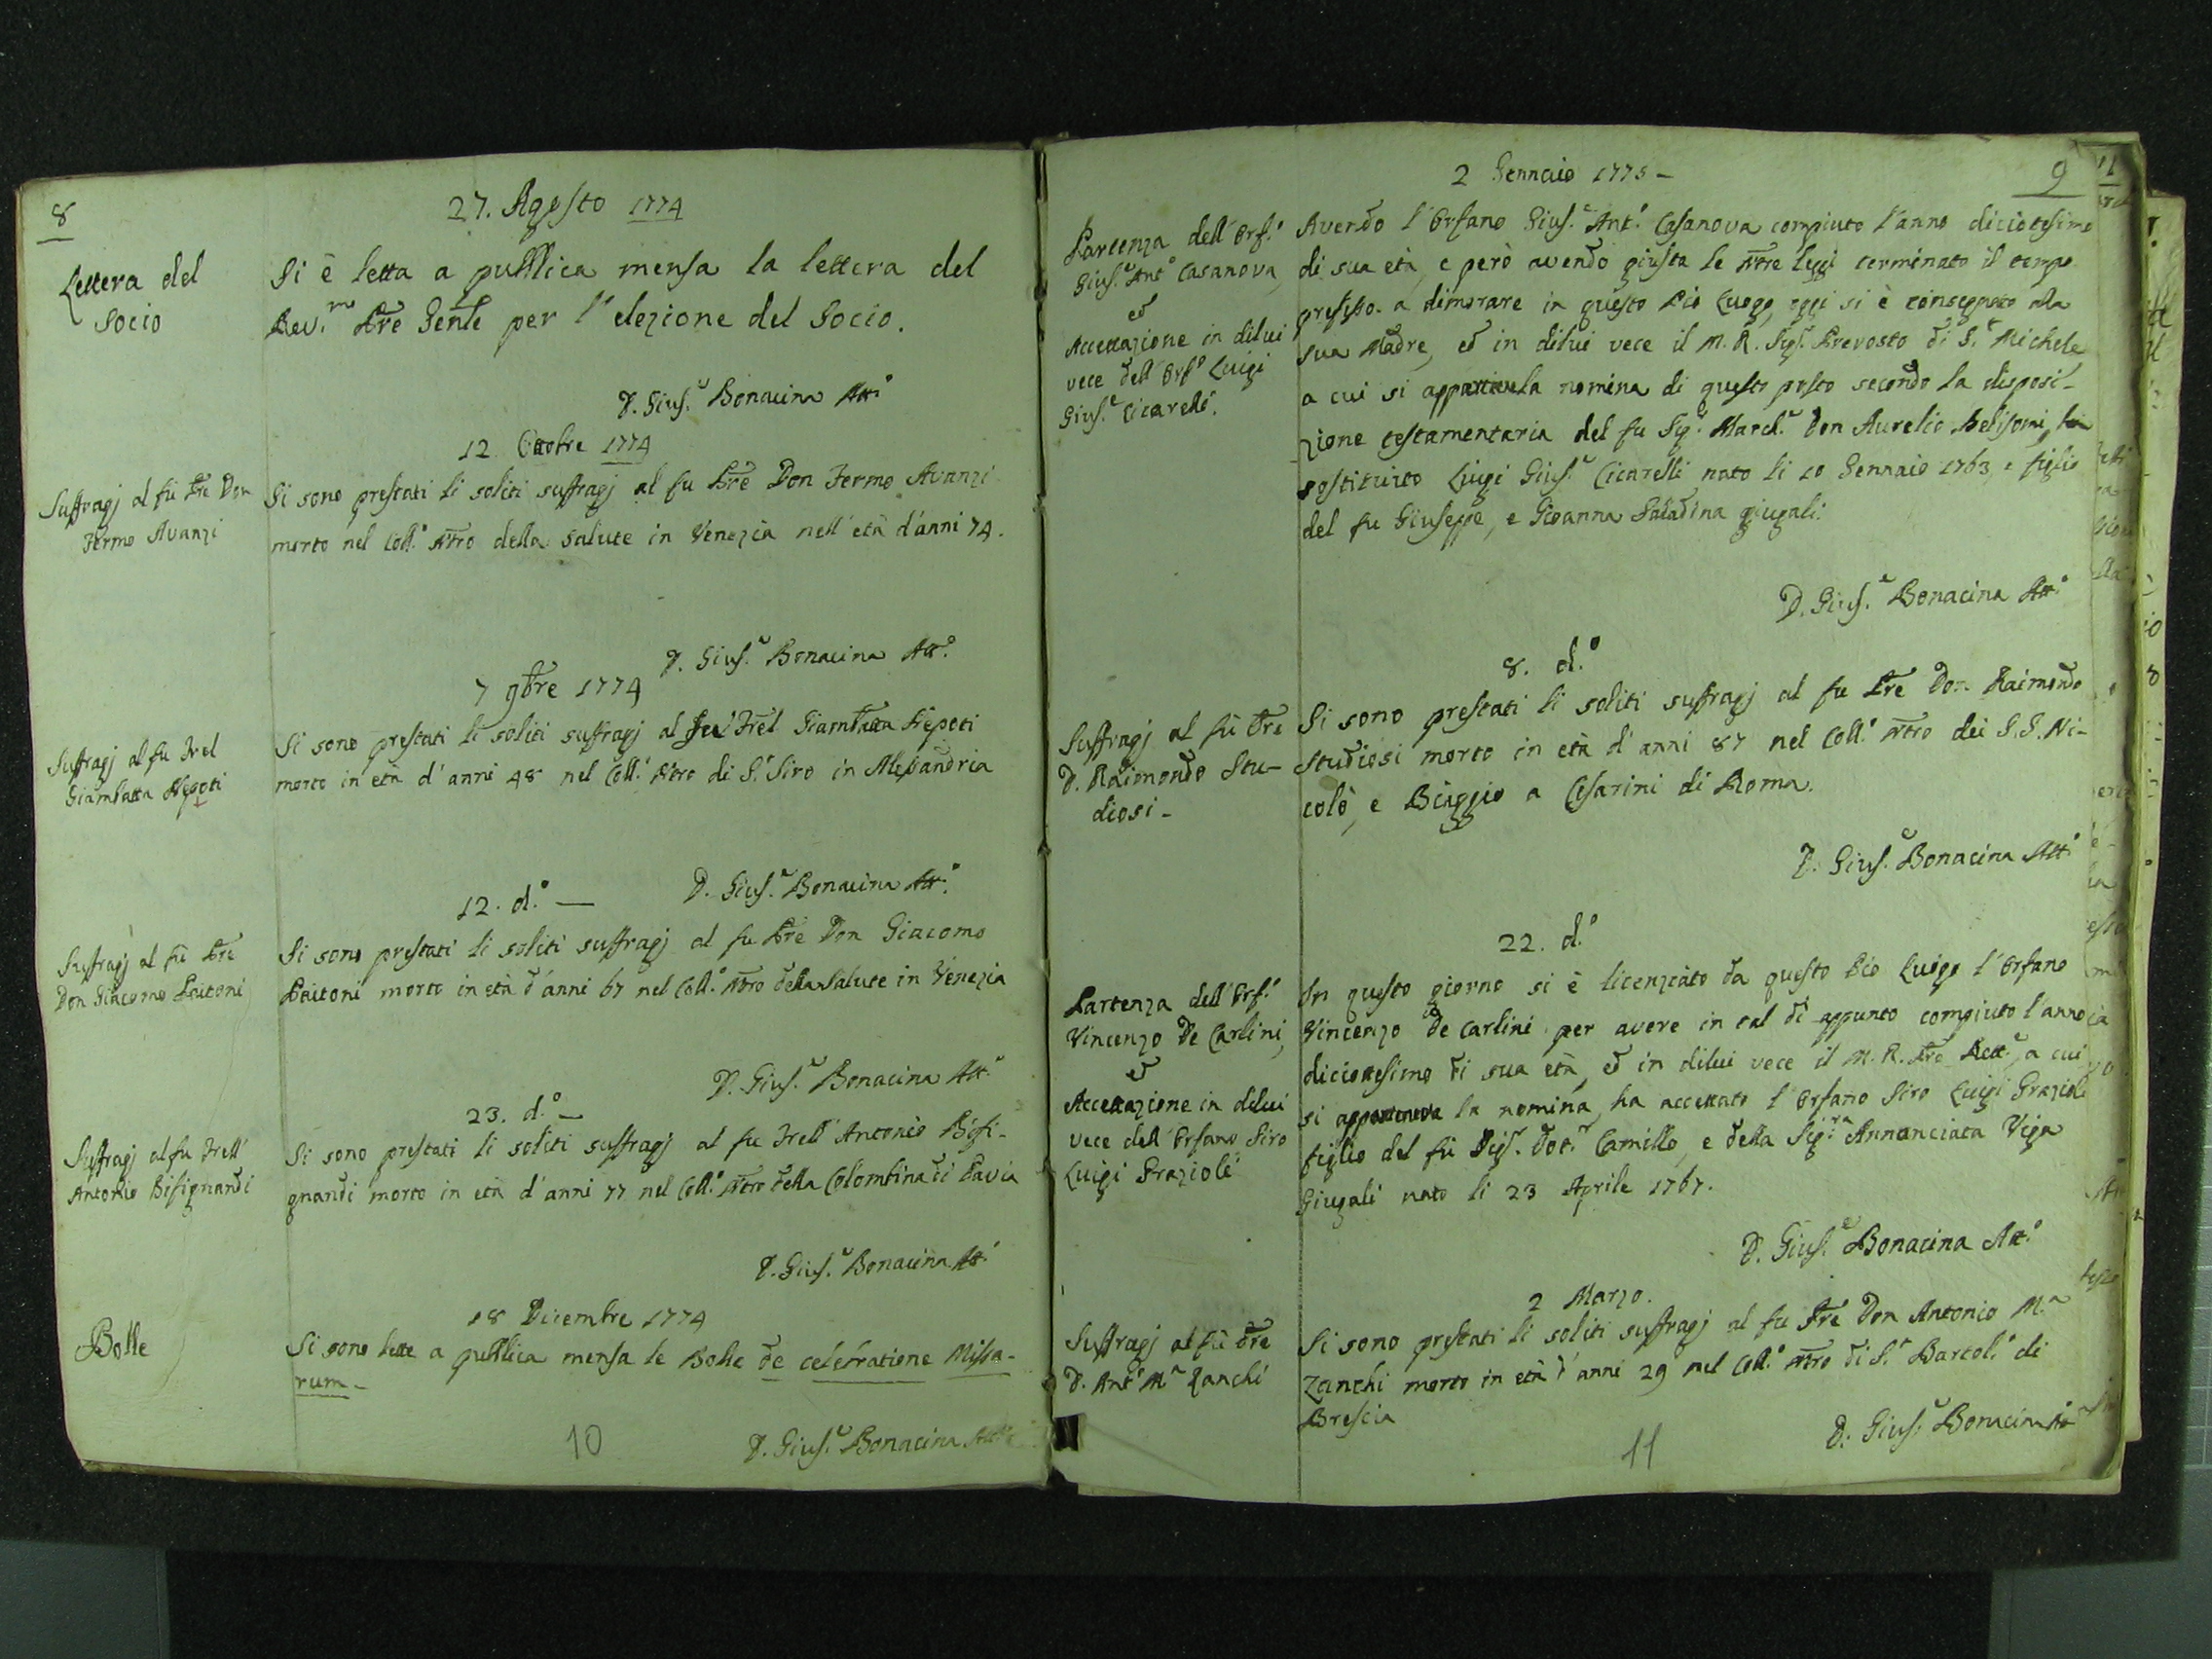 8
27. Agosto 1774
Lettera del
Socio
Si è letta a pubblica mensa la lettera del
Rev.mo Pre Genle per l'elezione del Socio.
D. Gius.e Bonacina Att.o
12 Ottobre 1774
Suffragj al fù Pre Don
Fermo Avanzi
Si sono prestati li soliti suffragj al fu Pre Don Fermo Avanzi
morto nel Coll.o Ntro della Salute in Venezia nell'età d'anni 74.
D. Gius.e Bonacina Att.o
7 9bre 1774
Suffragj al fu Frel
Giambatta Nepoti
Si sono prestati li soliti suffragj al fu Frel Giambatta Nepoti
morto in età d'anni 48 nel Coll.o Ntro di S.n Siro in Alessandria
D. Gius.e Bonacina Att.o
12. d.o —
Suffragj al fù Pre
Don Giacomo Paitoni
Si sono prestati li soliti suffragj al fu Pre Don Giacomo
Paitoni morto in età d'anni 67 nel Coll.o Ntro della Salute in Venezia
D. Gius.e Bonacina Att.o
23. d.o —
Suffragj al fu Frell'
Antonio Bisignandi
Si sono prestati li soliti suffragj al fu Frell' Antonio Bisi-
gnandi morto in età d'anni 77 nel Coll.o Ntro della Colombina di Pavia
D. Gius.e Bonacina Att.o
18 Dicembre 1774
Bolle
Si sono lette a pubblica mensa le Bolle de celebratione Missa-
rum -
D. Gius.e Bonacina Att.o
10
9
2 Gennaio 1775 -
Partenza dell'Orf.o
Gius.e Ant.o Casanova,
ed
Accettazione in dilui
vece dell'Orf.o Luigi
Gius.e Cicarelli.
Avendo l'Orfano Gius.e Ant.o Casanova compiuto l'anno diciotesimo
di sua età, e però avendo giusta le Ntre leggi terminato il tempo
prefisso a dimorare in questo Pio Luogo, oggi si è consegnato alla
sua Madre, ed in dilui vece il M. R. Sig.r Prevosto di S.n Michele
a cui si apparteneva la nomina di questo posto secondo la disposi-
zione testamentaria del fu Sig.r March.e Don Aurelio Belisomi, ha
sostituito Luigi Gius.e Cicarelli nato li 10 Gennaio 1763 e figlio
del fu Giuseppe, e Gioanna Saladina giugali.
D. Gius.e Bonacina Att.o
8. d.o
Suffragj al fù Pre
D. Raimondo Stu-
diosi -
Si sono prestati li soliti suffragj al fu Pre Don Raimondo
Studiosi morto in età d'anni 87 nel Coll.o Ntro dei S.S. Ni-
colò, e Biaggio a Cesarini di Roma.
D. Gius.e Bonacina Att.o
22. d.o
Partenza dell'Orf.o
Vincenzo De Carlini,
ed
Accettazione in dilui
vece dell'Orfano Siro
Luigi Grazioli
In questo giorno si è licenziato da questo Pio Luogo l'Orfano
Vincenzo De Carlini per avere in tal dì appunto compiuto l'anno
diciottesimo di sua età, ed in dilui vece il M. R. Pre Rett.e, a cui
si apparteneva la nomina, ha accettato l'Orfano Siro Luigi Grazioli
figlio del fù Sig.r Dot.r Camillo, e della Sig.ra Annunciata Viga
Giugali nato li 23 Aprile 1767.
D. Gius.e Bonacina Att.o
2 Marzo.
Suffragj al fù Pre
D. Ant.o M.a Zanchi
Si sono prestati li soliti suffragj al fu Pre Don Antonio M.a
Zanchi morto in età d'anni 29 nel Coll.o Ntro di S.n Bartol.o di
Brescia
D. Gius.e Bonacina Att.o
11